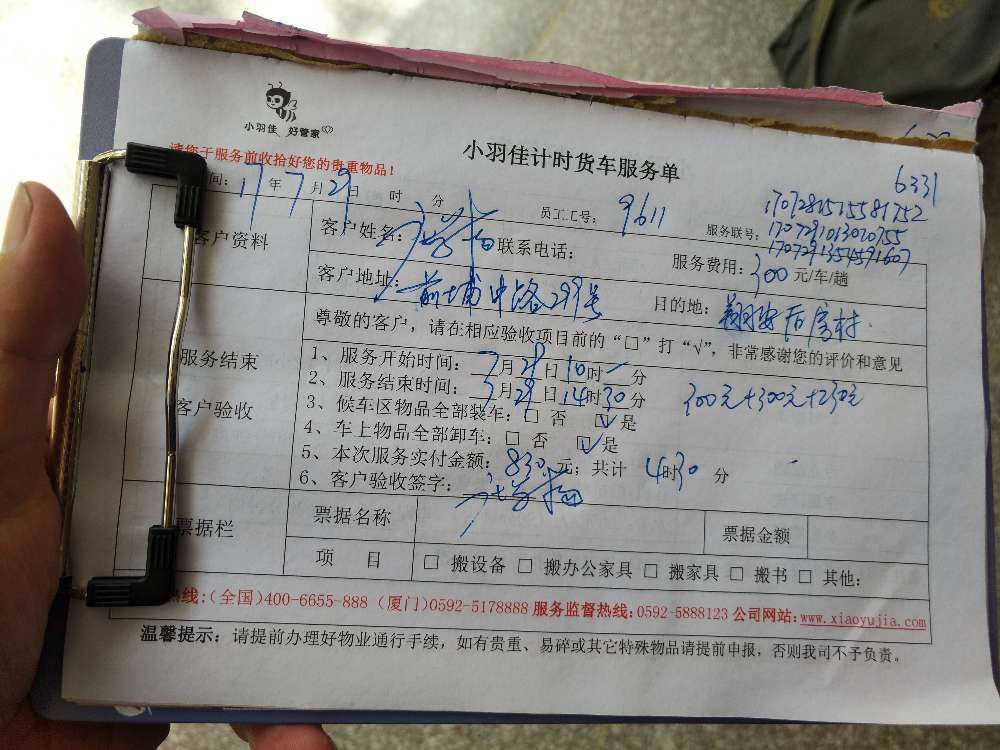 小羽佳 好管家
小羽佳计时货车服务单
请您于服务前收拾好您的贵重物品！
6331
间：17年7月29日 时 分
员工工号：9611
服务联号：
1707281515581752
1707291013020755
1707291354591607
客户资料
客户姓名： 联系电话：
服务费用：300元/车/趟
客户地址：前埔中路299号
目的地：翔安后房村
尊敬的客户，请在相应验收项目前的“□”打“√”，非常感谢您的评价和意见
服务结束
客户验收
1、服务开始时间：7月29日10时一分
2、服务结束时间：7月29日14时30分
300元+300元+230元
3、候车区物品全部装车：□ 否 ☑是
4、车上物品全部卸车：□ 否 ☑是
5、本次服务实付金额：830元；共计 4时30分
6、客户验收签字：
票据栏
票据名称
票据金额
项 目
□ 搬设备 □ 搬办公家具 □ 搬家具 □ 搬书 □ 其他：
热线：(全国)400-6655-888 (厦门)0592-5178888 服务监督热线：0592-5888123 公司网站：www.xiaoyujia.com
温馨提示：请提前办理好物业通行手续，如有贵重、易碎或其它特殊物品请提前申报，否则我司不予负责。